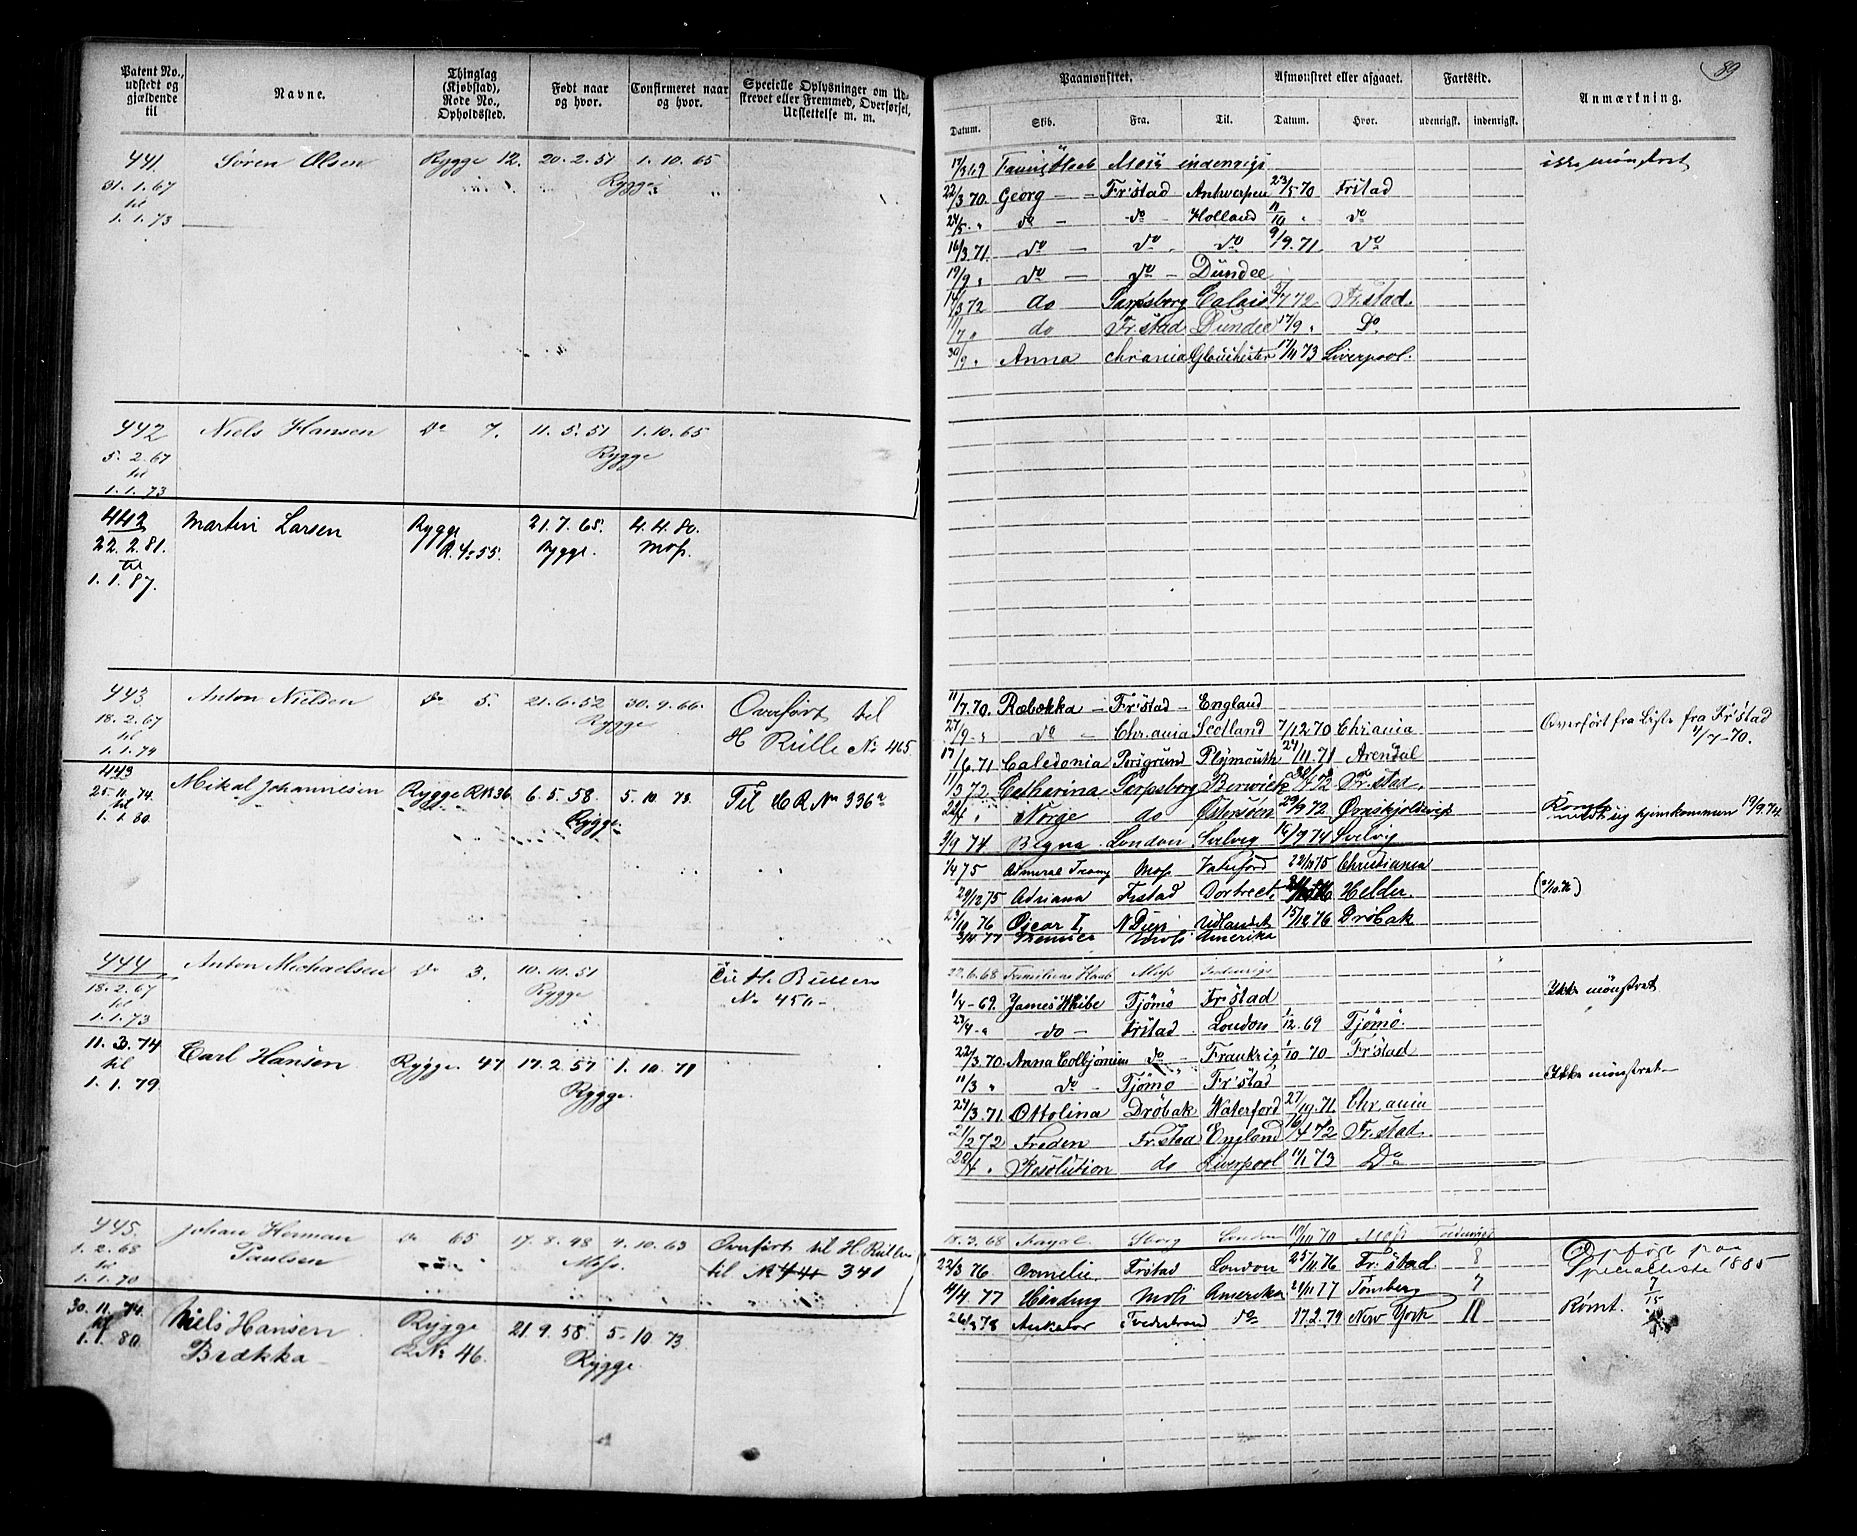 89
Patent No., udstedt og gjældende til
Navne.
Thinglag (Kjøbstad), Rode No., Opholdssted.
Født naar og hvor.
Confirmeret naar og hvor.
Specielle Oplysninger om Udskrevet eller Fremmed, Overførsel, Udslettelse m. m.
Paamønstret.
Afmønstret eller afgaaet.
Fartstid.
Anmærkning.
Datum. Skib. Fra. Til. Datum. Hvor. udenrigsk. indenrigsk.
441 Søren Olsen Rygge 12. 20.2.51 1.10.65
31.1.67 Rygge
til
1.1.73
17/3 69 Moss indenrigs ikke mønstret
22/3 70. Georg Fr:stad Antwerpen 23/5 70 Frstad
24/5 " do do Holland 11/10 " do
16/3 71. do do do 9/9. 71. do
19/9 " do do Dundee
14/3 72 do Sarpsborg Calais 5/7 72 Fr.stad
11/7 " do Fr.stad Dundee 17/9 " Do
30/9 " Anna Chrania Glouchester 17/11 73 Liverpool.
442 Niels Hansen Do 7. 11.5.51 1.10.65
5.2.67 Rygge
til
1.1.73
442 Martin Larsen Rygge 21.7.65. 4.4.80.
22.2.81. R. No 55. Rygge. Moss.
til
1.1.87.
443 Anton Nielsen Do 5. 21.6.52 30.9.66. Overført til
18.2.67 Rygge H Rulle No 465
til
1.1.74
11/7. 70. Rebekka Fr:stad England
27/9 " do Chr.ania Scotland 7/12. 70 Chr.ania Overført fra Liste fra Fr:stad 11/7-70.
17/6. 71 Caledonia Porsgrund Plymouth 24/11. 71 Arendal
11/3 72 Catharina Sarpsborg Berwick 72 Fr.stad.
443 Mikal Johannesen Rygge R No 36 6.5.58. 5.10.73. Til H R No 336
25.11.74. Rygge
til
1.1.80.
22/4 " Norge do Østersøen 29/9 72 Ørnskjoldsvig hjemkommen 19/9.74.
3/9 74 Begna London Svelvig 16/9 74 Svelvig
1/4 75 Admeral Tromp Moss Vaterford 22/11 75 Christiania
29/12 75 Adriana Frstad Dortrect. Helder
23/10 76 Oscar I. Udlandet 15/12 76 Drøbak
3/4 77 Amerika
444 Anton Michaelsen Do 3. 10.10.51 Til H. Rullen
18.2.67 Rygge No 450-
til
1.1.73
27.6.68 Familiens Haab Moss Indenrigs
1/4-69. James Tjømø Fr:stad Ikke mønstret
23/4 " do Frstad London 1/12. 69 Tjømø.
11.3.74 Carl Hansen Rygge 47 17.2.57 1.10.71
til Rygge.
1.1.79
22/3. 70. Anna Colbjørnsen do Frankrig 1/10 70 Fr:stad
11/3 " do Tjømø Fr:stad Ikke mønstret
24/3. 71. Ottolina Drøbak Waterford 27/10. 71. Chr.ania
21/2 72 Freden Fr.stad England 16/4 72 Fr.stad.
28/4 " Resolution do Liverpool 11/1 73 Do
445. Johan Herman Paulsen Do 65 17.8.48 4.10.63 Overført til H. Rullen
1.2.68 Moss. til No 341
til
1.1.70
18.3.68 London 10/10 70 Moss
22/3 76 Frstad London 25/11. 76 Fr:stad. 8 Opført paa Specialliste 1885
30.11.74. Niels Hansen Brækka Rygge R No 46. 21.9.58. 5.10.73.
til Rygge.
1.1.80.
4/4. 77 Amerika Tønsberg 7 Rømt.
Ankator Tvedestrand do 17.2.79 New York 11